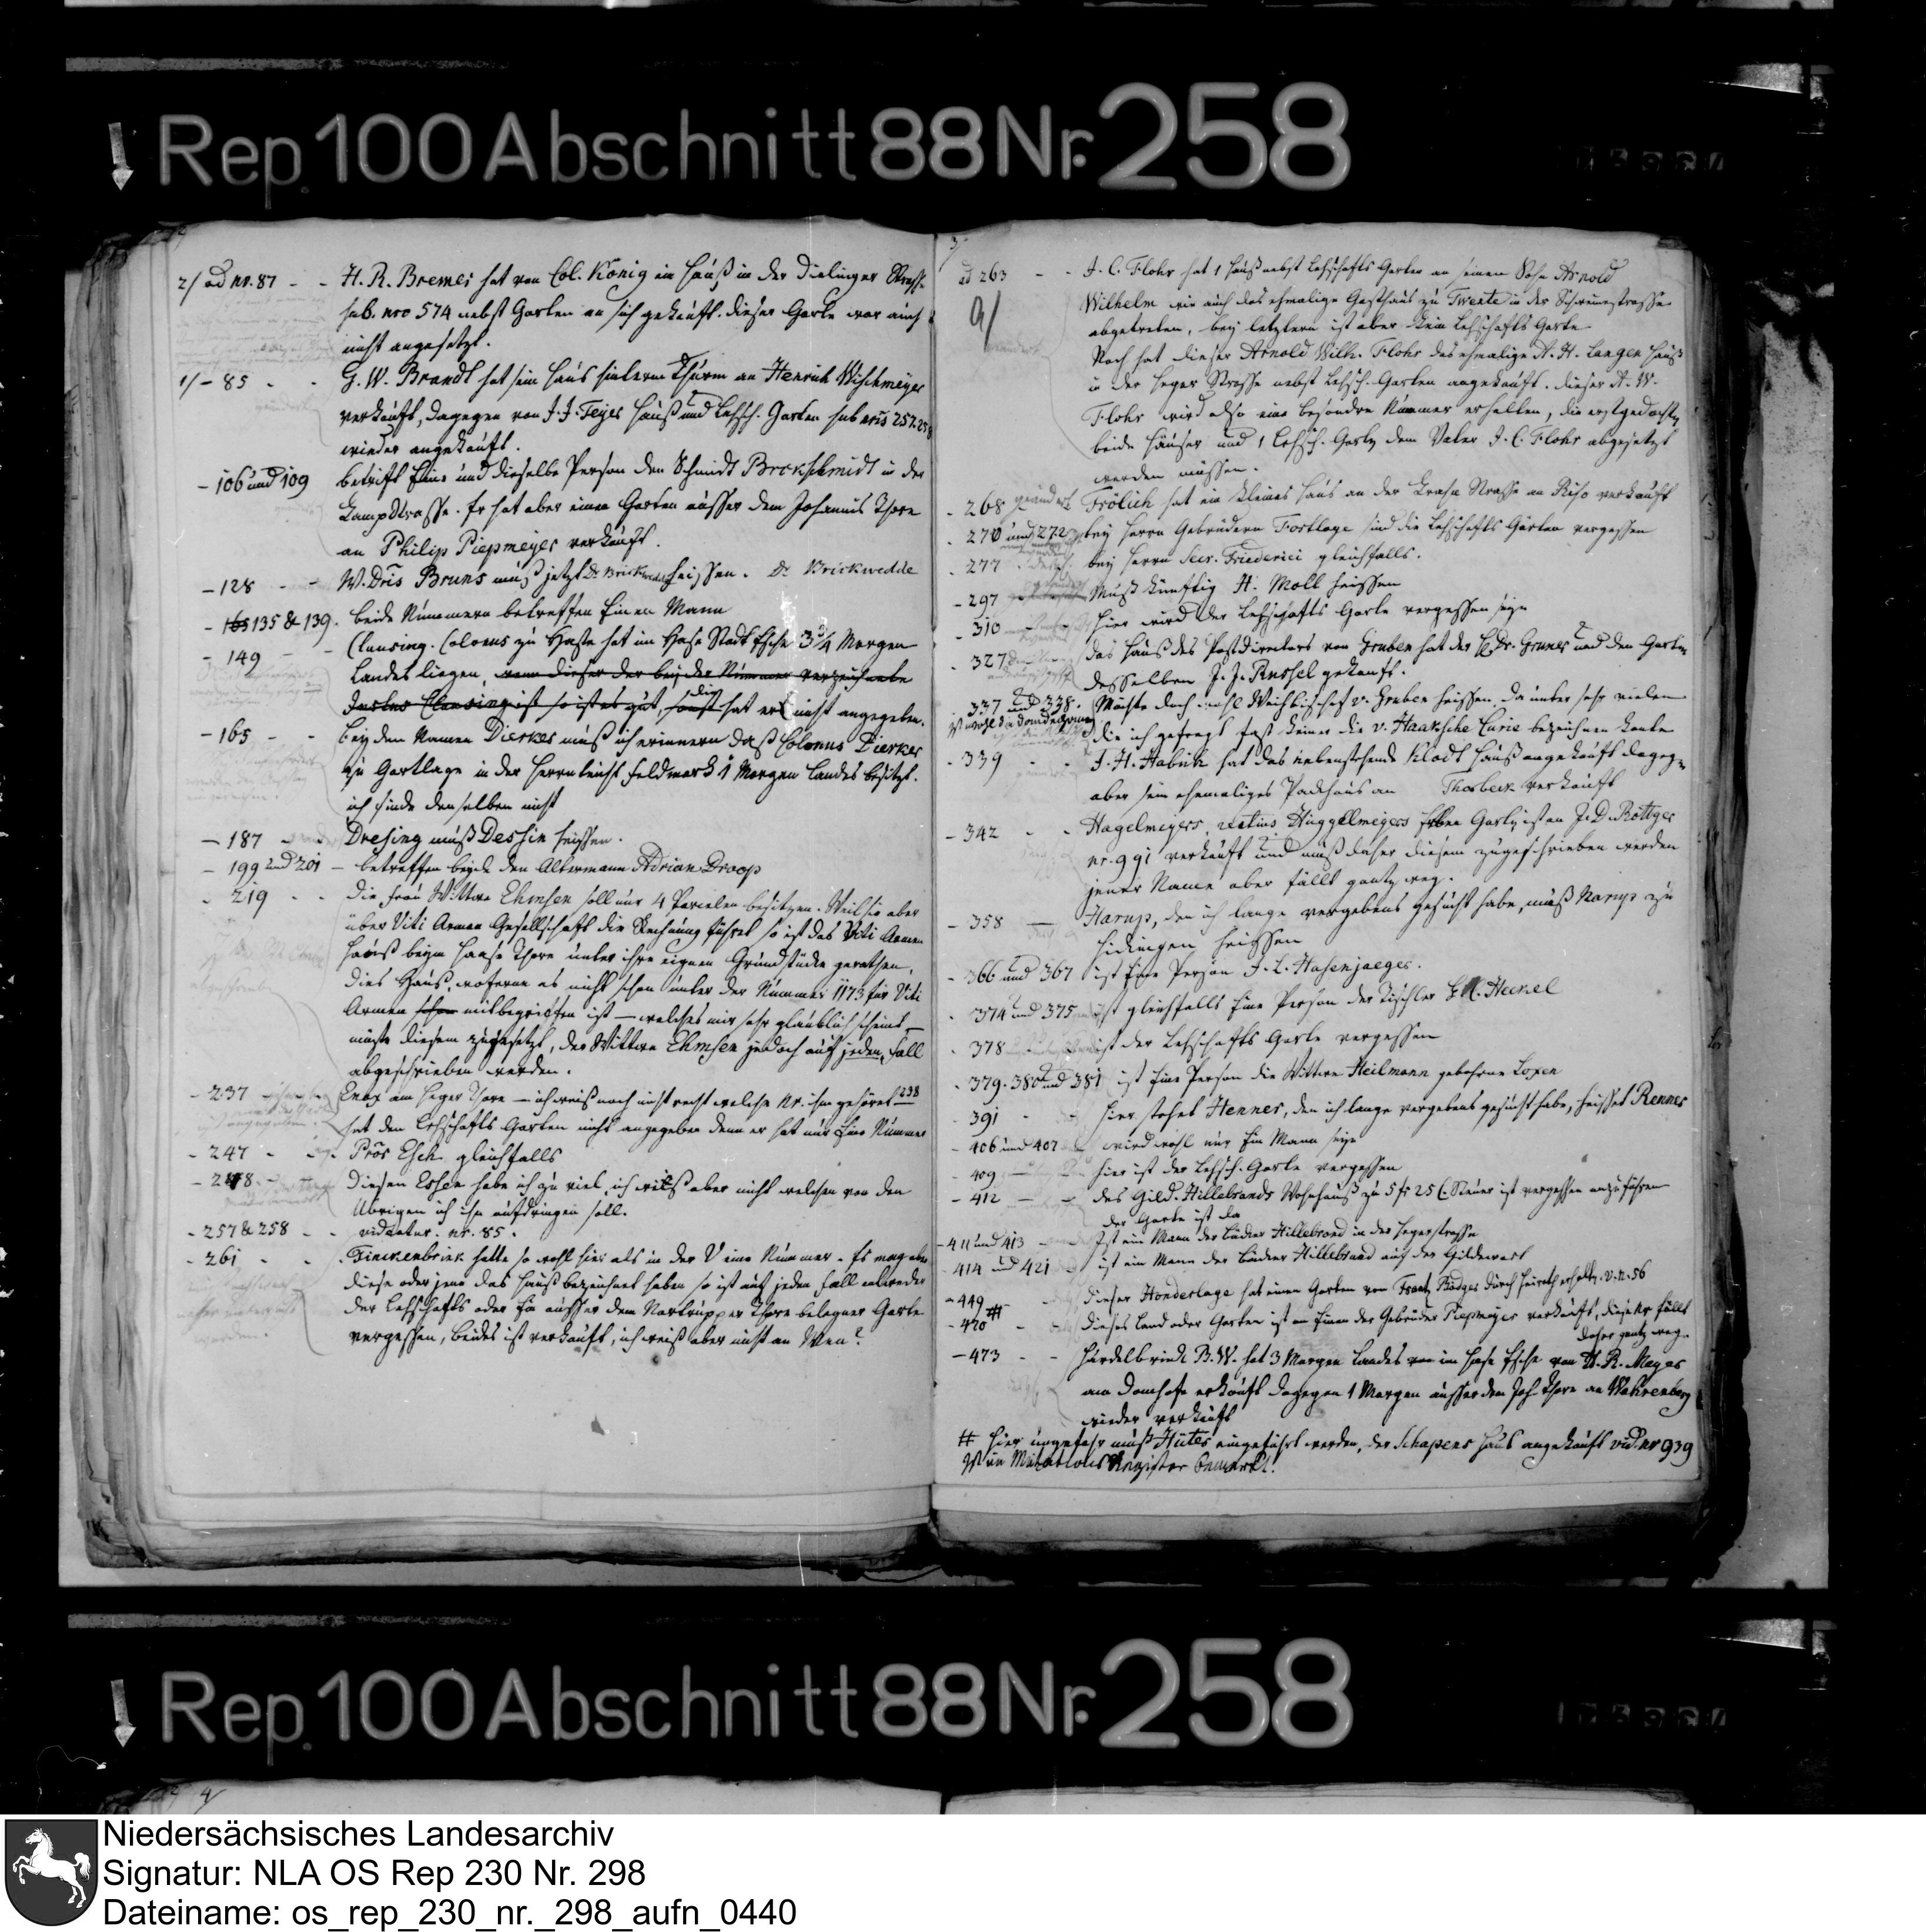 Rep. 100 Abschnitt 88 Nr. 258
2/ ad nr. 87 - - H. R. Bremer hat von Col. König ein Hauß in der Dielinger Strasse
sub. nro 574 nebst Garten an sich gekauft. dieser Garte war auch
nicht angesetzt.
1/ - 85 - - G. W. Brandt hat sein Haus hinterm Thurm an Henrich Wischmeyer
verkauft, dagegen von J. J. Feyer Hauß und Lehsch. Garten sub nris 257. 258
wieder angekauft.
- 106 und 109 betrift Eine und dieselbe Person den Schmidt Brokschmidt in der
Kampstrasse. Er hat aber einen Garten ausser dem Johannis Thore
an Philip Piepmeyer verkauft.
- 128 - - W. Dris Bruns muß jetzt Dr. Brickwedde heissen. Dr. Brickwedde
- 165 135 & 139. beide Nummern betreffen Einen Mann
- 149 - - Clausing. Colonus zu Haste hat im Hase Stadt Esche 3 3/4 Morgen
Landes liegen, wenn dieser der bey der Nummer verzeichnete
Justus Clausing ist so ist es gut, sonst hat er die nicht angegeben.
- 165 - - bey dem Namen Dierkes muß ich erinnern daß Colonus Dierkes
zu Gartlage in der Herrnteichs Feldmark 1 Morgen Landes besitzt.
ich finde denselben nicht
- 187 Dresing muß Dessin heissen.
- 199 und 201 - betreffen beyde den Altermann Adrian Droop
- 219 - - die Frau Wittwe Ehmsen soll nur 4 Parcelen besitzen. Weil sie aber
über Viti Armen Gesellschaft die Rechnung führet so ist das Viti Armen
Hauß beym Haase Thore unter ihre eignen Grundstücke gerathen.
dies Hauß, woferne es nicht schon unter der Nummer 1173 für Viti
Armen schon mitbegriffen ist - welches mir sehr glaublich scheint -
müste diesem zugesetzt, der Wittwe Ehmsen jedoch auf jeden Fall
abgeschrieben werden.
- 237 Enax am Heger Thore - ich weiß noch nicht recht welche Nr. ihm gehöret 238
hat den Lehschafts Garten nicht angegeben denn er hat nur Eine Nummer
- 247 - - Prör Esch gleichfalls
- 248. - Diesen Essen habe ich zu viel, ich weiß aber nicht welchen von den
Übrigen ich ihn aufdringen soll.
- 257 & 258 - - videatur. nr. 85.
- 261 - - Finckenbrink hatte so wohl hier als in der V eine Nummer. Es mag aber
diese oder jene das Hauß bezeichnet haben so ist auf jeden Fall entweder
der Lehschafts oder ein ausser dem Nortrupper Thore belegner Garte
vergessen, beides ist verkauft, ich weiß aber nicht an Wen?
3/
ad 263 - - J. C. Flohr hat 1 Hauß nebst Lehschafts Garten an seinen Sohn Arnold
Wilhelm wie auch das ehmalige Gasthaus zu Twente in der Schwinestrasse
abgetreten, bey letztern ist aber kein Lehschafts Garte
Noch hat dieser Arnold Wilh. Flohr das ehmalige A. H. Langen Hauß
in der Heger Strasse nebst Lehsch. Garten angekauft. dieser A. W.
Flohr wird also eine besondre Nummer erhalten, die erstgedachten
beide Häuser und 1 Lehsch. Garten dem Vater J. C. Flohr abgesetzt
werden müssen.
- 268 geändert Frölich hat ein kleines Haus an der Krahn Strasse an Riso verkauft
- 270 und 272 bey Herrn Gebrüdern Fortlage sind die Lehschafts Gärten vergessen
- 277 bey Herrn Secr. Friederici gleichfalls.
- 297 Muß künftig H. Moll heissen
- 310 - - hier wird der Lehschafts Garte vergessen seyn
- 327 das Hauß des Postdirectors von Gruben hat der Dr. Gruner und den Garten
desselben J. J. Russel gekauft.
- 337 und 338. Müste doch wohl Weihbischof v. Gruben heissen, da unter sehr vielen
die ich gefragt fast keiner die v. Haaksche Curie bezeichnen konte
- 339 - - J. H. Habich hat das nebenstehende Klodt Hauß angekauft dagegen
aber sein ehemaliges Packhaus an Thorbeck verkauft
- 342 - - Hagelmeyers, rectius Huggelmeyers Garten ist an J. D. Röttger
nr. 991 verkauft und muß daher diesem zugeschrieben werden
jener Name aber fällt gantz weg.
- 358 - Harup, den ich lange vergebens gesucht habe, muß Narup zu
Hickingen heissen
- 366 und 367 ist Eine Person J. L. Hasenjaeger.
- 374 und 375 ist gleichfalls Eine Person der Tischler Heckel
- 378 ist der Lehschafts Garte vergessen
- 379. 380 und 381 ist Eine Person die Wittwe Heilmann gebohrne Loxen
391 - - hier stehet Hennes, den ich lange vergebens gesucht habe, heisset Rennes
- 406 und 407 wird wohl nur Ein Mann seyn
- 409 - hier ist der Lehsch. Garte vergessen
- 412 - - des Gild. Hillebrands Wohnhauß zu 5 fs 25 C. Steuer ist vergessen anzuführen
der Garte ist da
- 411 und 413 - Ist ein Mann der Bäcker Hillebrand in der Hegerstrasse
- 414 und 421 ist ein Mann der Bäcker Hillebrand auf der Gildewart
- 449 dieser Honderlage hat einen Garten von Frantz Rödger durch Heirath erhalten. v. n. 56
- 420 # dieses Land oder Garten ist an Einen der Gebrüder Piepmeyer verkauft, diese Nr fällt
daher gantz weg.
- 473 - - Hardelbrink B. W. hat 3 Morgen Landes im Hase Esche von H. R. Meyer
am Domhofe erkauft dagegen 1 Morgen ausser dem Joh. Thore an Wahrenberg
wieder verkauft
# Hier ungefehr muß Hütes eingeführt werden, der Schapers Haus angekauft vid. nr 939
Ist im Mutations Register bemerkt.
Rep. 100 Abschnitt 88 Nr. 258
4/
Niedersächsisches Landesarchiv
Signatur: NLA OS Rep 230 Nr. 298
Dateiname: os_rep_230_nr._298_aufn_0440